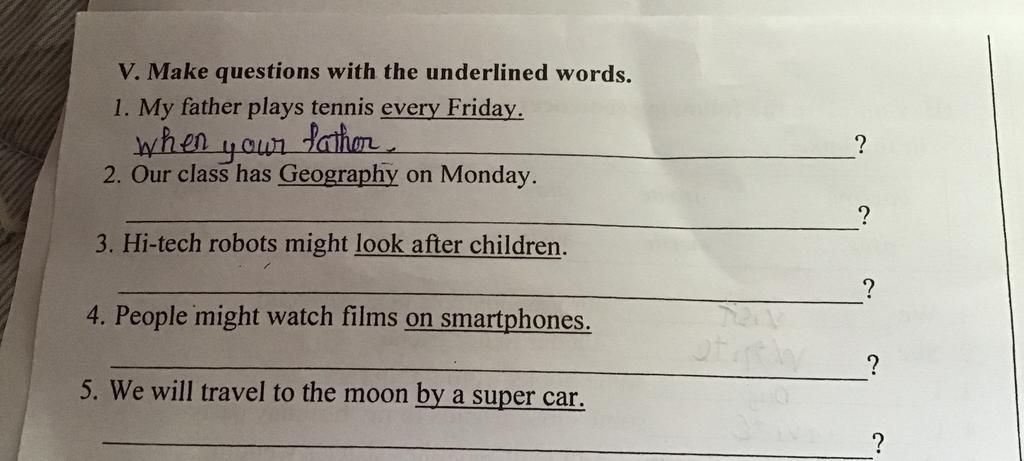 V. Make questions with the underlined words.
1. My father plays tennis every Friday.
when your father ?
2. Our class has Geography on Monday.
?
3. Hi-tech robots might look after children.
?
4. People might watch films on smartphones.
?
5. We will travel to the moon by a super car.
?